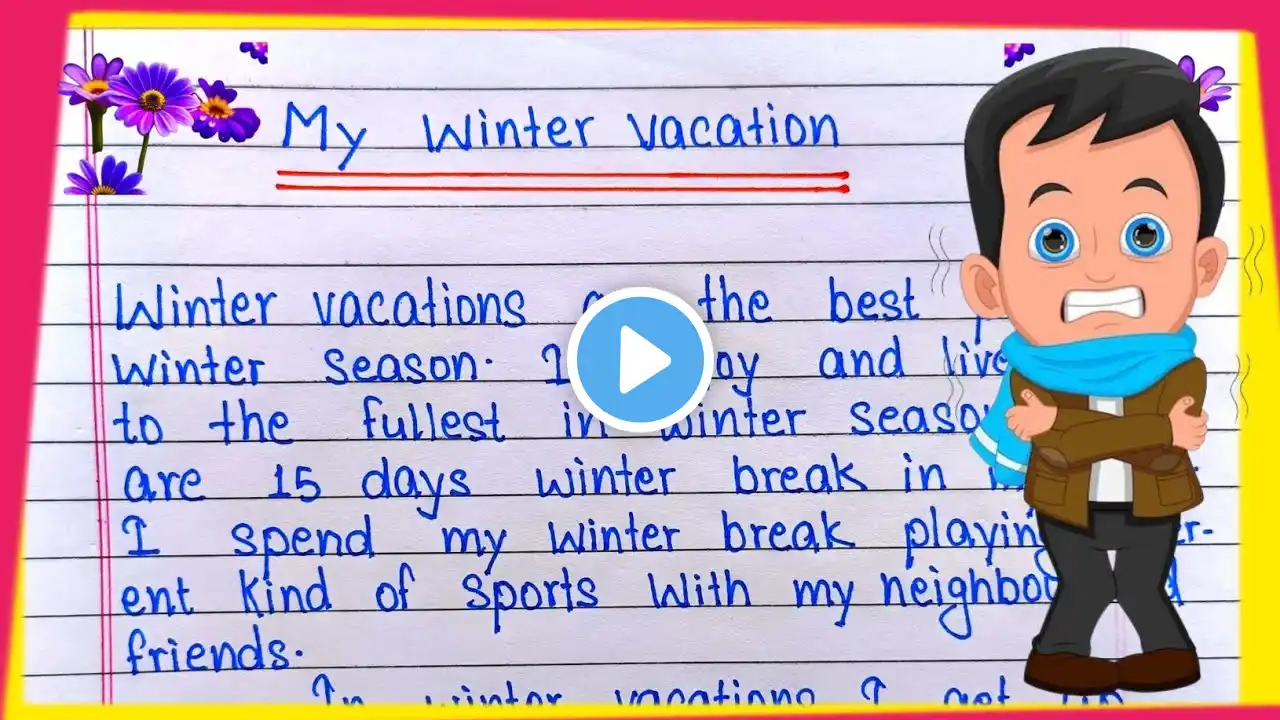 My Winter vacation
Winter vacations the best
winter season. I and live
to the fullest in winter
are 15 days winter break in
I spend my winter break
ent kind of sports with my
friends.
In winter vacations I get up